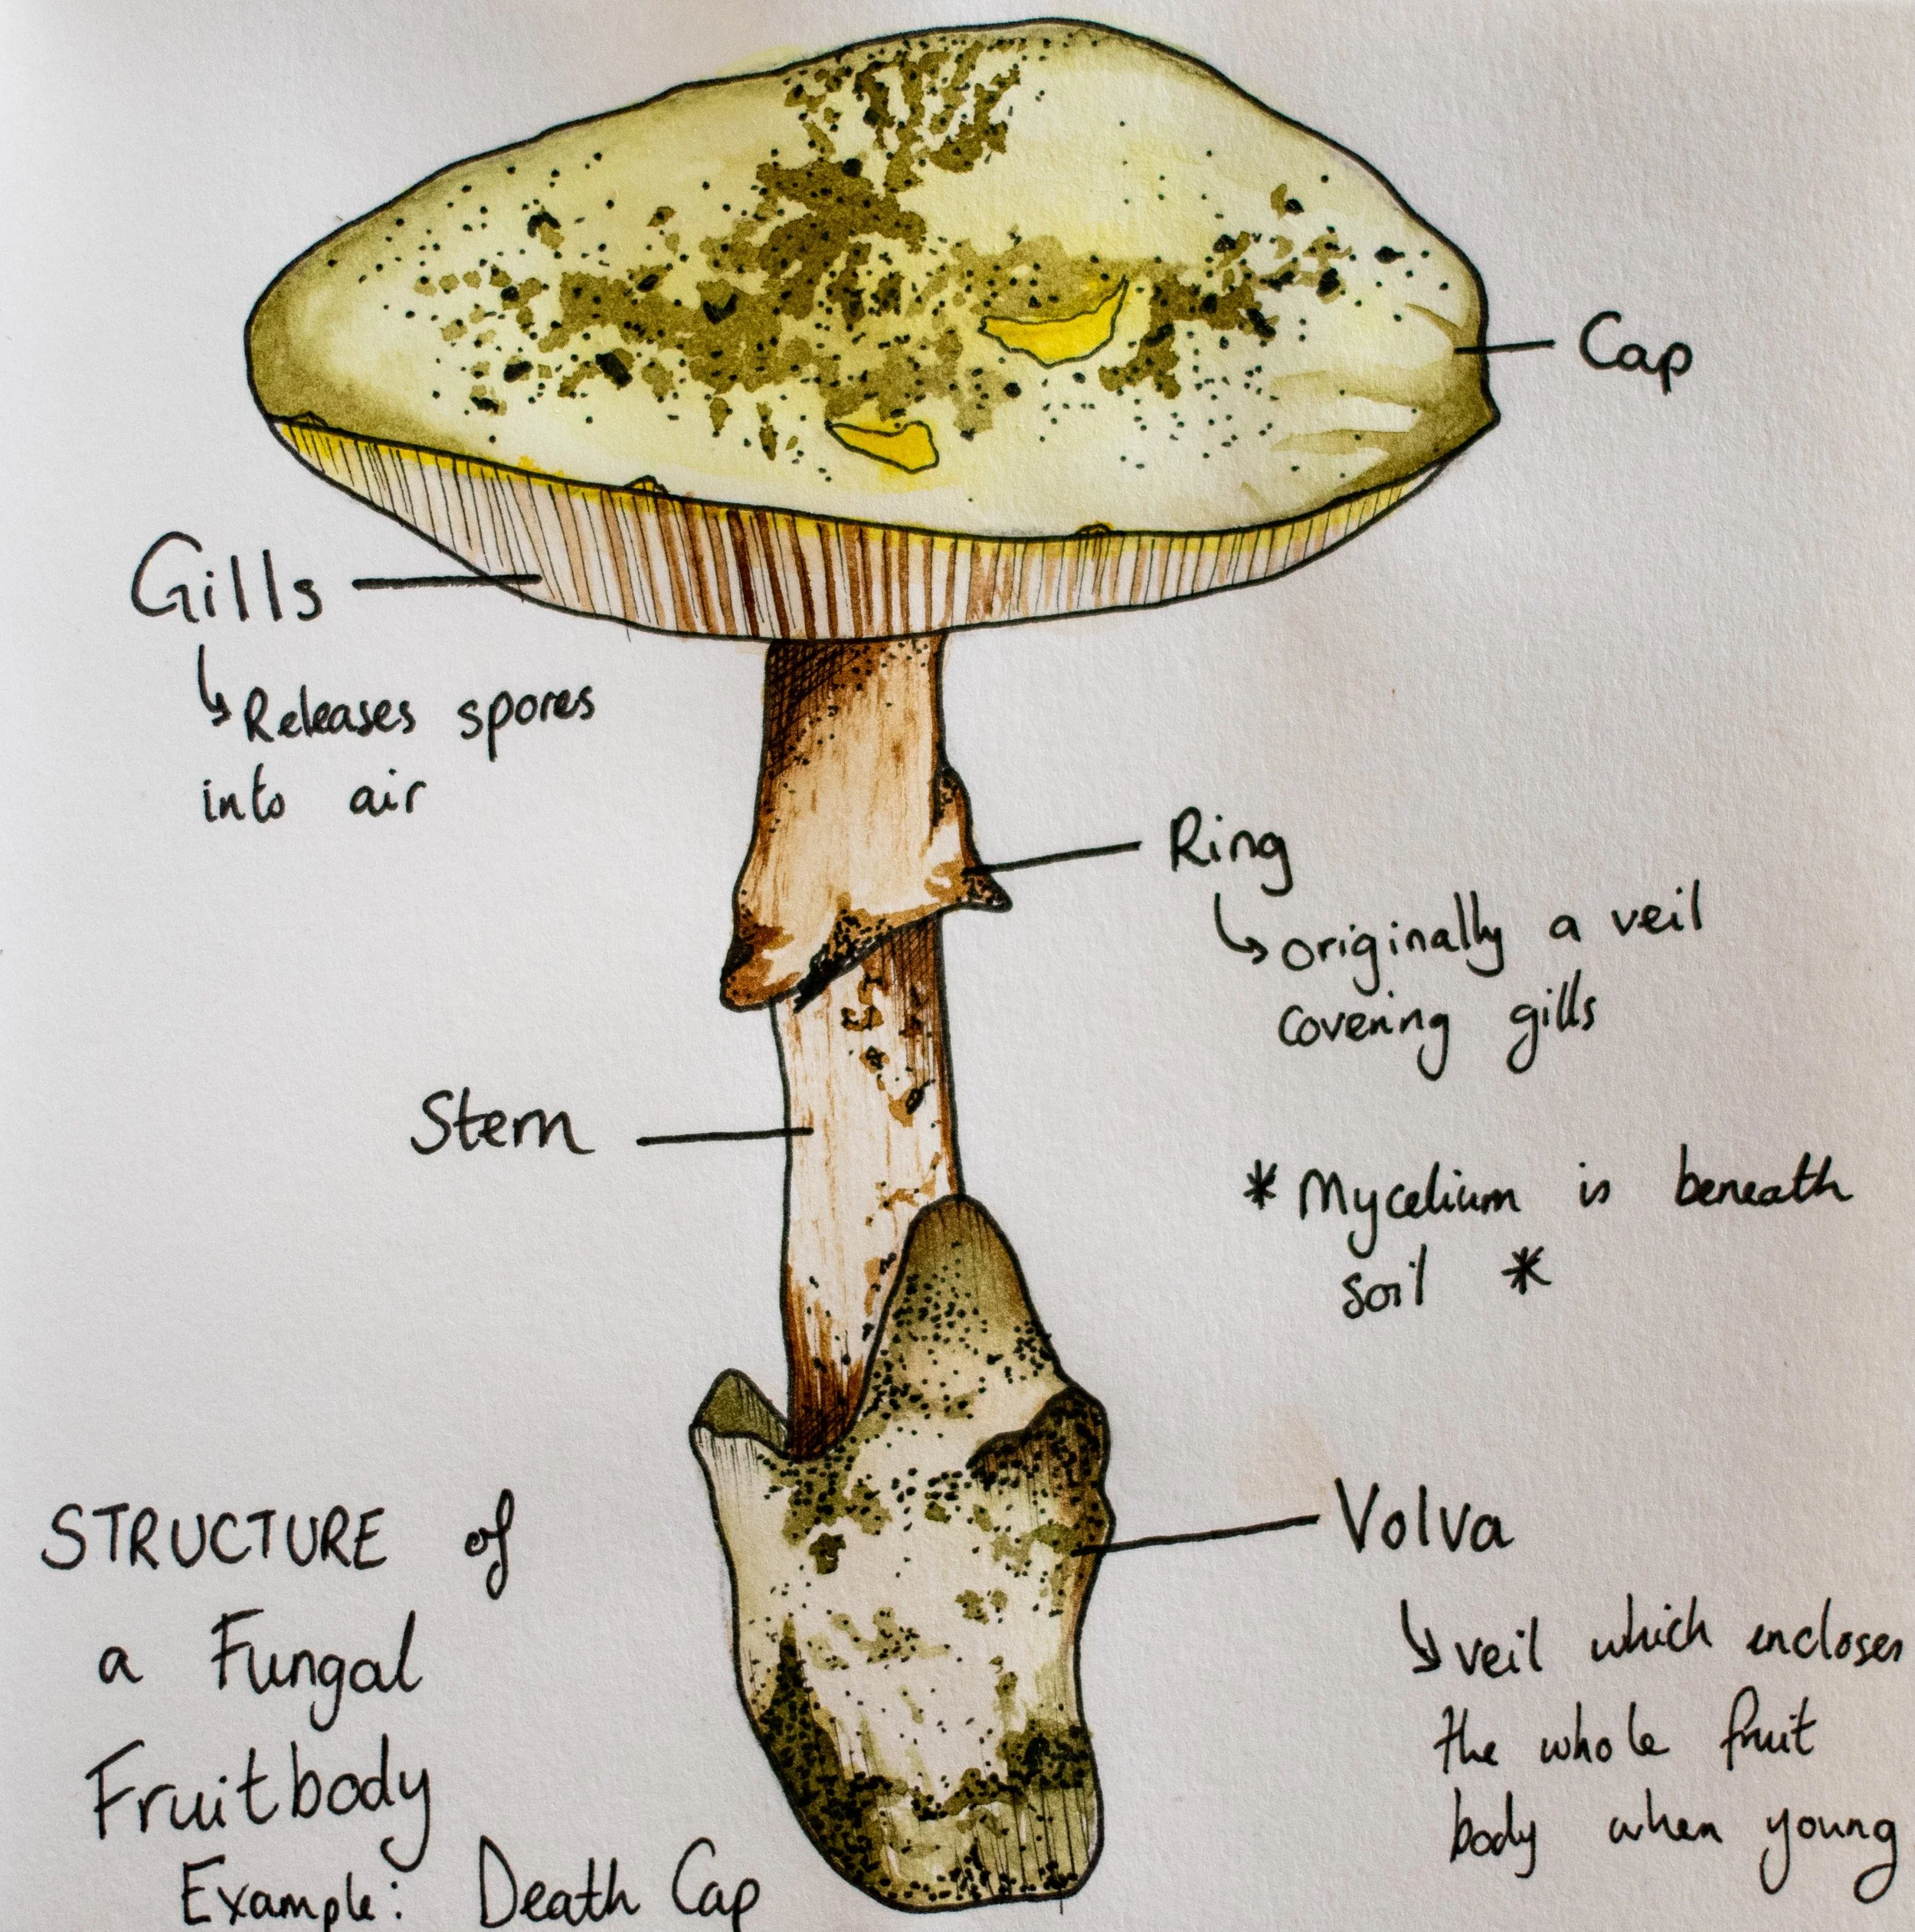 Cap
Gills
Releases spores
into air
Ring
originally a veil
covering gills
Stem
* Mycelium is beneath
soil *
Volva
veil which encloses
the whole fruit
body when young
STRUCTURE of
a Fungal
Fruitbody
Example: Death Cap